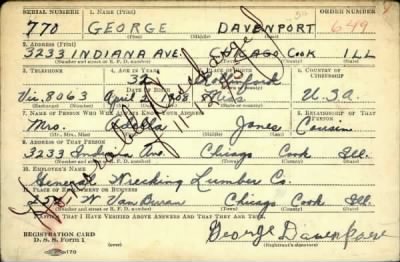 SERIAL NUMBER 1. NAME (Print) ORDER NUMBER
770 GEORGE DAVENPORT 649
(First) (Middle) (Last)
2. ADDRESS (Print)
3233 INDIANA AVE. CHICAGO COOK ILL
(Number and street or R. F. D. number) (Town) (County) (State)
3. TELEPHONE 4. AGE IN YEARS 5. PLACE OF BIRTH 6. COUNTRY OF CITIZENSHIP
32
DATE OF BIRTH
Vic. 8063 April 1908 Miss U.S.A.
(Exchange) (Number) (Mo.) (Day) (Yr.) (State or country)
7. NAME OF PERSON WHO WILL ALWAYS KNOW YOUR ADDRESS 8. RELATIONSHIP OF THAT PERSON
Mrs. Jones Cousin
(Mr., Mrs., Miss) (First) (Middle) (Last)
9. ADDRESS OF THAT PERSON
3233 Indiana Ave. Chicago Cook Ill.
(Number and street or R. F. D. number) (Town) (County) (State)
10. EMPLOYER'S NAME
General Wrecking Lumber Co.
11. PLACE OF EMPLOYMENT OR BUSINESS
W. Van Buren Chicago Cook Ill.
(Number and street or R. F. D. number) (Town) (County) (State)
I AFFIRM THAT I HAVE VERIFIED ABOVE ANSWERS AND THAT THEY ARE TRUE.
REGISTRATION CARD
D. S. S. Form 1 George Davenport
(Registrant's signature)
Honorably Discharged